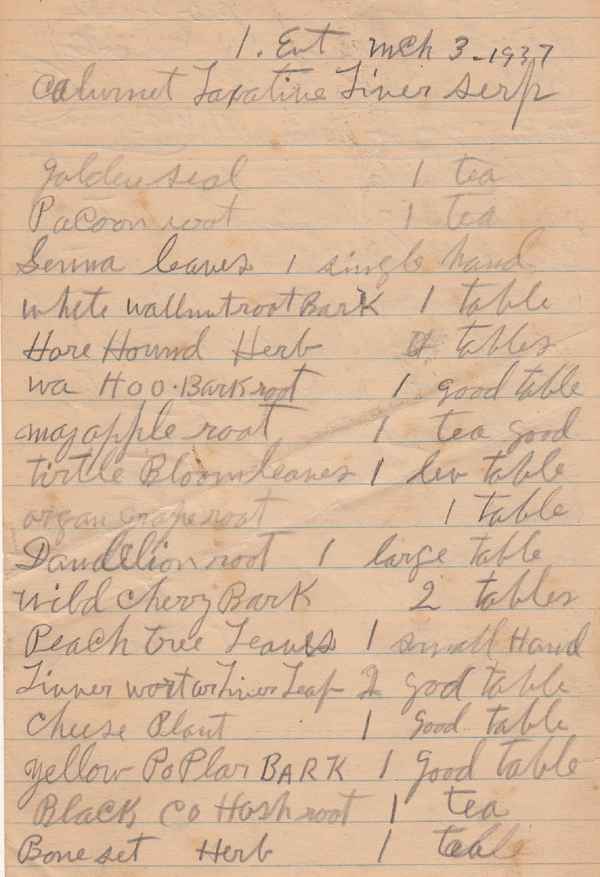 1. Ent mch 3-1937
Calumet Laxative Liver serp
golden seal 1 tea
Pacoon root 1 tea
Senna leaves 1 single hand
white wallnutroot Bark 1 table
Hore Hound Herb 4 tables
wa Hoo.Bark root 1 good table
mayapple root 1 tea good
tirtle Bloom leaves 1 lev table
organ grape root 1 table
Dandelion root 1 large table
wild cherry Bark 2 tables
Peach tree Leaves 1 small Hand
Livver wort or Liver Leaf 2 good table
Cheese Plant 1 good table
yellow PoPlar BARK 1 good table
Black Co Hosh root 1 tea
Bone set Herb 1 table